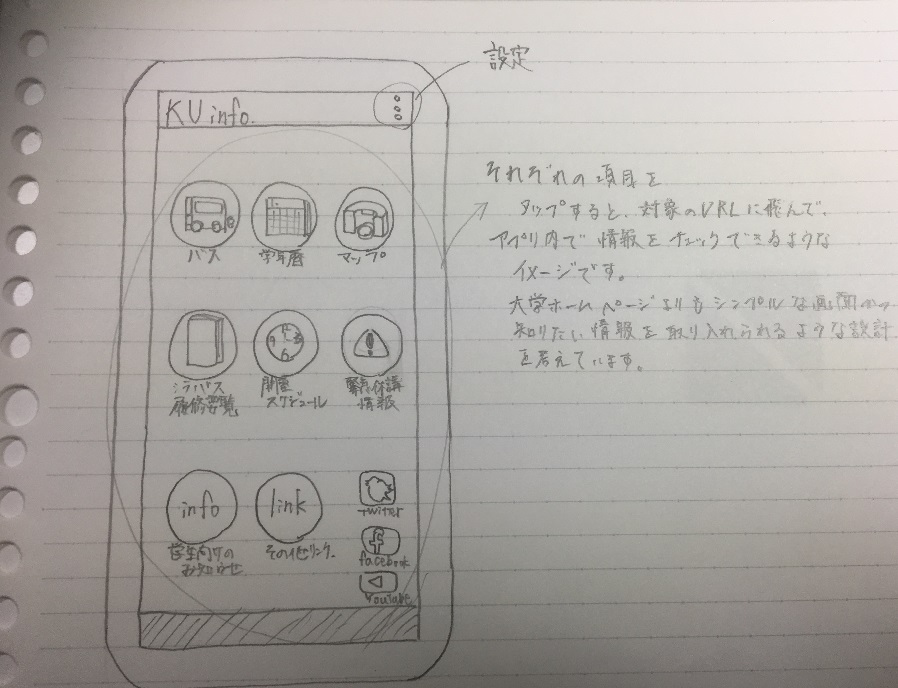 設定
KU info.
バス
学年暦
マップ
シラバス
履修要覧
開室
スケジュール
緊急休講
情報
info
学生向けの
お知らせ
link
その他リンク
Twitter
facebook
YouTube
それぞれの項目を
タップすると、対象のURLに飛んで、
アプリ内で情報をチェックできるような
イメージです。
大学ホームページよりもシンプルな画面かつ
知りたい情報を取り入れられるような設計
を考えています。